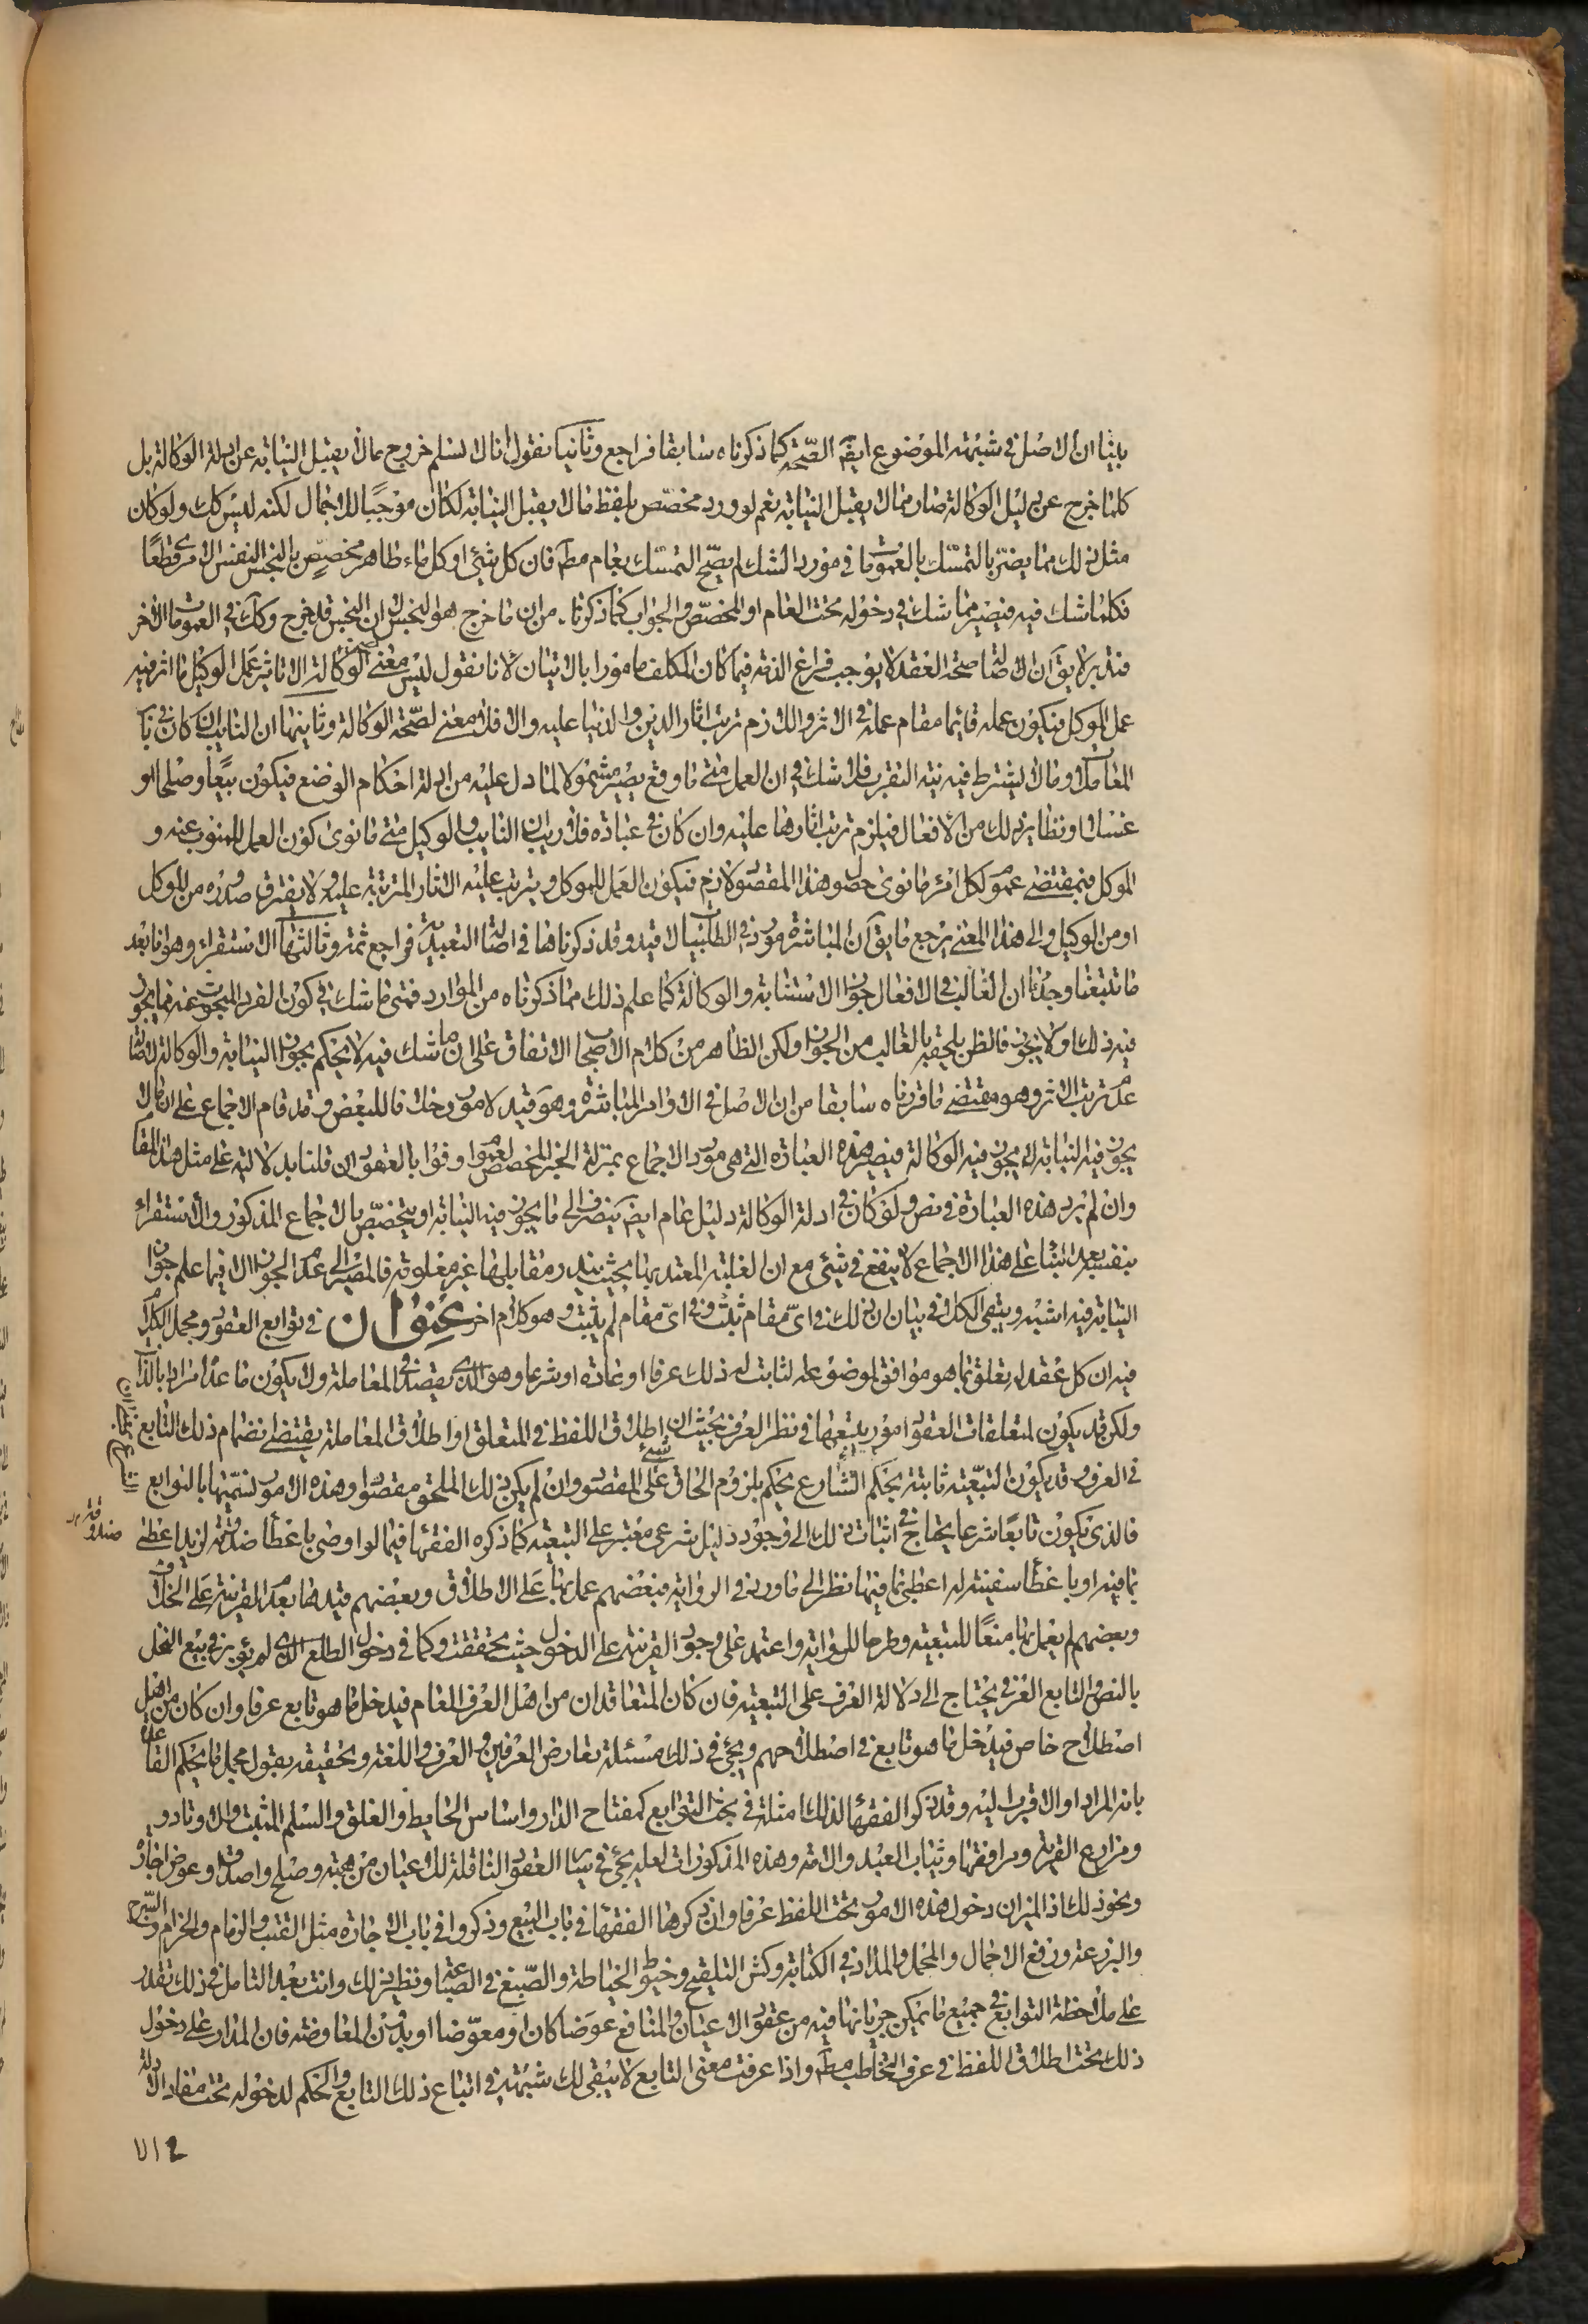 بينا ان الاصل في شبهة الموضوع ايضا الصحة كما ذكرناه سابقا فراجع وثانيا نقول انا لا نسلم خروج ما لا يقبل النيابة عن ادلة الوكالة بل
كلما خرج عن دليل الوكالة صار مما لا يقبل النيابة نعم لو ورد مخصص بلفظ ما لا يقبل النيابة لكان موجبا للاجمال لكنه ليس كك ولو كان
مثل ذلك مما يضر بالتمسك بالعمومات في مورد الشك لم يصح التمسك بعام مط فان كل شئ او كل ماء طاهر مخصص بالنجس النفس الامرى قطعا
فكلما شك فيه فيصير مما شك في دخوله تحت العام او المخصص والجواب كما ذكرنا من ان ما خرج هو النجس لان النجس قد خرج وكك في العمومات الاخر
فتدبر لا يق ان اصالة صحة العقد لا يوجب فراغ الذمة فيما كان المكلف مامورا بالاتيان لانا نقول ليس معنى صحة الوكالة الا تاثير عمل الوكيل ما اثر فيه
عمل الموكل فيكون عمله قائما مقام عمله في الاثر واللازم ترتب اثار الدين والدنيا عليه والا فلا معنى لصحة الوكالة وثانيها ان النايب ان كان في باب
المعاملات وما لا يشترط فيه نية التقرب فلا شك في ان العمل متى ما وقع يصير مشمولا لما دل عليه من ادلة احكام الوضع فيكون بيعا وصلحا او
غسلا او نظاير ذلك من الافعال فيلزم ترتب اثارها عليه وان كان في عبادة فلا ريب ان النايب والوكيل متى ما نوى كون العمل للمنوب عنه و
الموكل فبمقتضى عموم لكل امرء ما نوى حصول هذا المقصود لازم فيكون العمل للموكل ويترتب عليه الاثار المترتبة عليه ولا يفترق صدوره من الموكل
او من الوكيل والى هذا المعنى يرجع ما يق ان المباشرة مورد في الطلبيات لا قيد وقد ذكرناها في اصالة التعبدية فراجع ثمة وثالثها الاستقراء وهو انا بعد
ما تتبعنا وجدنا ان الغالب في الافعال جواز الاستنابة والوكالة كما علم ذلك مما ذكرناه من الموارد فمتى ما شك في كون الفرد المبحوث عنه مما يجوز
فيه ذلك او لا يجوز فالظن يلحقه بالغالب من الجواز ولكن الظاهر من كلام الاصحاب الاتفاق على ان ما شك فيه لا يحكم بجواز النيابة والوكالة لاصالة
عدم ترتب الاثر وهو مقتضى ما قررناه سابقا من ان الاصل في الاوامر المباشرة وهو قيد لا مورد خلافا للبعض وقد قام الاجماع على ان ما لا
يجوز فيه النيابة لا يجوز فيه الوكالة فيصير هذه العبادة التي هي مورد الاجماع بمنزلة الخبر المخصص لعموم اوفوا بالعقود ان قلنا بدلالته على مثل هذا المقام
وان لم يرد هذه العبارة في نص ولو كان في ادلة الوكالة دليل عام ايضا ينصرف الى ما يجوز فيه النيابة او يتخصص بالاجماع المذكور والاستقراء
بنفسه بعد البناء على هذا الاجماع لا ينفع في شئ مع ان الغلبة المعتد بها بحيث يندر مقابلها غير معلومة فالمصير الى عدم الجواز الا فيما علم جواز
النيابة فيه اشبه ويبقى الكلام في بيان ان ذلك في اى مقام ثبت وفي اى مقام لم يثبت وهو كلام اخر عنوان في توابع العقود ومجمل الكلام
فيه ان كل عقد له تعلق بما هو موافق لموضوعه لثابت له ذلك عرفا او عادة او شرعا وهو الذى يقصد في المعاملة ولا يكون ما عداه مرادا بالذات
ولكن قد يكون لمتعلقات العقود امور يتبعها في نظر العرف بحيث ان اطلاق اللفظ في المتعلق او اطلاق المعاملة يقتضى انضمام ذلك التابع
في العرف وقد يكون التبعية ثابتة بحكم الشارع يحكم بلزوم الحاق شئ على المقصود وان لم يكن ذلك الملحق مقصودا وهذه الامور نسميها بالتوابع
فالذى يكون تابعا شرعا يحتاج في اثبات ذلك الى وجود دليل شرعى معتبر على التبعية كما ذكره الفقهاء فيما لو اوصى باعطاء صندوقه لزيد اعطى
بما فيه او باعطاء سفينة له اعطى بما فيها نظرا الى ما ورد في الرواية فبعضهم عمل بها على الاطلاق وبعضهم قيدها بعدم القرينة على الخلاف
وبعضهم لم يعمل بها منعا للتبعية وطرحا للرواية واعتمد على وجود القرينة على الدخول حيث تحققت وكما في دخول الطلع الذى لم يؤبر في بيع النخل
بالنص والتابع العرفي يحتاج الى دلالة العرف على التبعية فان كان المتعاقدان من اهل العرف العام فيدخل ما هو تابع عرفا وان كان من اهل
اصطلاح خاص فيدخل ما هو تابع في اصطلاحهم ويجئ في ذلك مسئلة تعارض العرفين والعرف واللغة وتحقيقه بقول مجمل ما يحكم القاعدة
بانه المراد او الاقرب اليه وقد ذكر الفقهاء لذلك امثلة في بحث التوابع كمفتاح الدار واساس الحايط والغلق والسلم المثبت والاوتاد و
ومزارع القرية ومرافقها وثياب العبد والامة وهذه المذكورات لعله يجئ في ساير العقود الناقلة للاعيان من هبة وصلح واصداق وعوض اجارة
ونحو ذلك اذ الميزان دخول هذه الامور تحت اللفظ عرفا وان ذكرها الفقهاء في باب البيع وذكروا في باب الاجارة مثل القتب والزمام والحزام والسرج
والبرذعة ورفع الاحمال والمحمل والمداد في الكتابة وكش التلقيح وخيوط الخياطة والصبغ في الصباغة ونظير ذلك وانت بعد التامل في ذلك تقدر
على ملاحظة التوابع في جميع ما يمكن جريانها فيه من عقود الاعيان والمنافع عوضا كان او معوضا او بدون المعاوضة فان المدار على دخول
ذلك تحت اطلاق اللفظ في عرف التخاطب مط واذا عرفت معنى التابع لا يبقى لك شبهة في اتباع ذلك التابع والحكم لدخوله تحت مفاد الادلة
۷۱۲